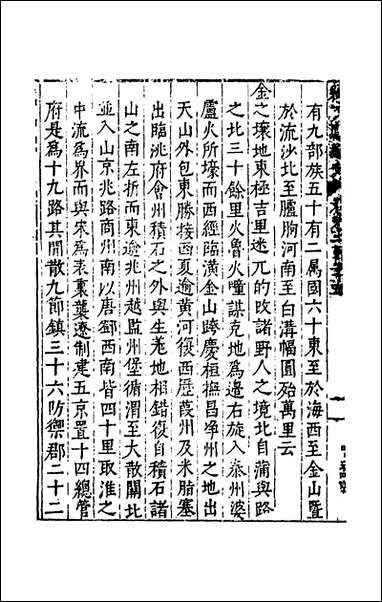 有九部族五十有二屬國六十東至於海西至金山暨
於流沙北至臚朐河南至白溝幅圓殆萬里云
金之壤地東極吉里迷兀的改諸野人之境北自蒲與路
之北三十餘里火魯火疃謀克地為邊右旋入泰州婆
盧火所壕而西經臨潢金山跨慶桓撫昌淨州之地出
天山外包東勝接西夏逾黃河復西歷葭州及米脂塞
出臨洮府會州積石之外與生羌地相錯復自積石諸
山之南左折而東逾洮州越監州堡循渭至大散關北
並入山京兆路商州南以唐鄧西南皆四十里取淮之
中流為界而與宋為表裏襲遼制建五京置十四總管
府是為十九路其開散九節鎮三十六防禦郡二十二